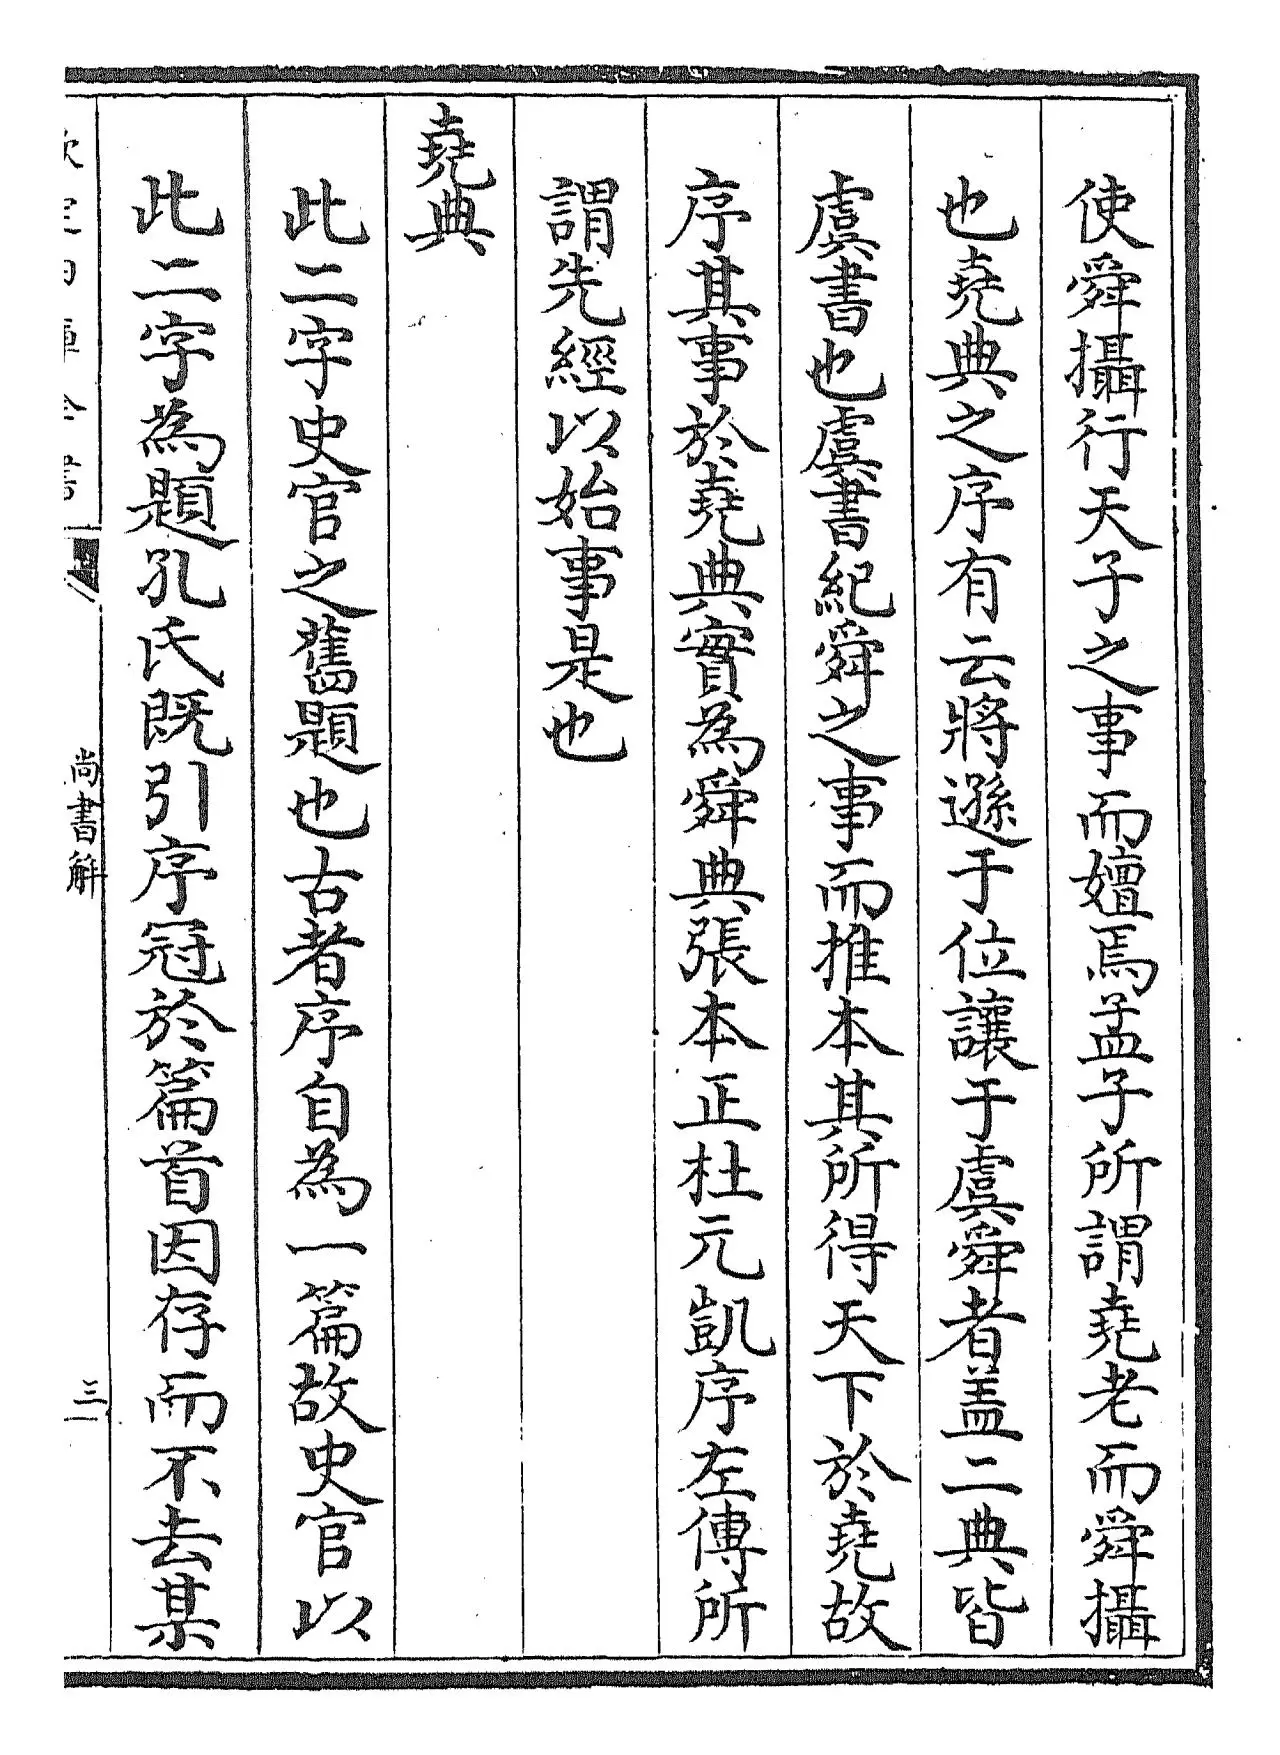 使舜攝行天子之事而嬗焉孟子所謂堯老而舜攝
也堯典之序有云將遜于位讓于虞舜者盖二典皆
虞書也虞書紀舜之事而推本其所得天下於堯故
序其事於堯典實為舜典張本正杜元凱序左傳所
謂先經以始事是也
堯典
此二字史官之舊題也古者序自為一篇故史官以
此二字為題孔氏既引序冠於篇首因存而不去某
尚書解
三